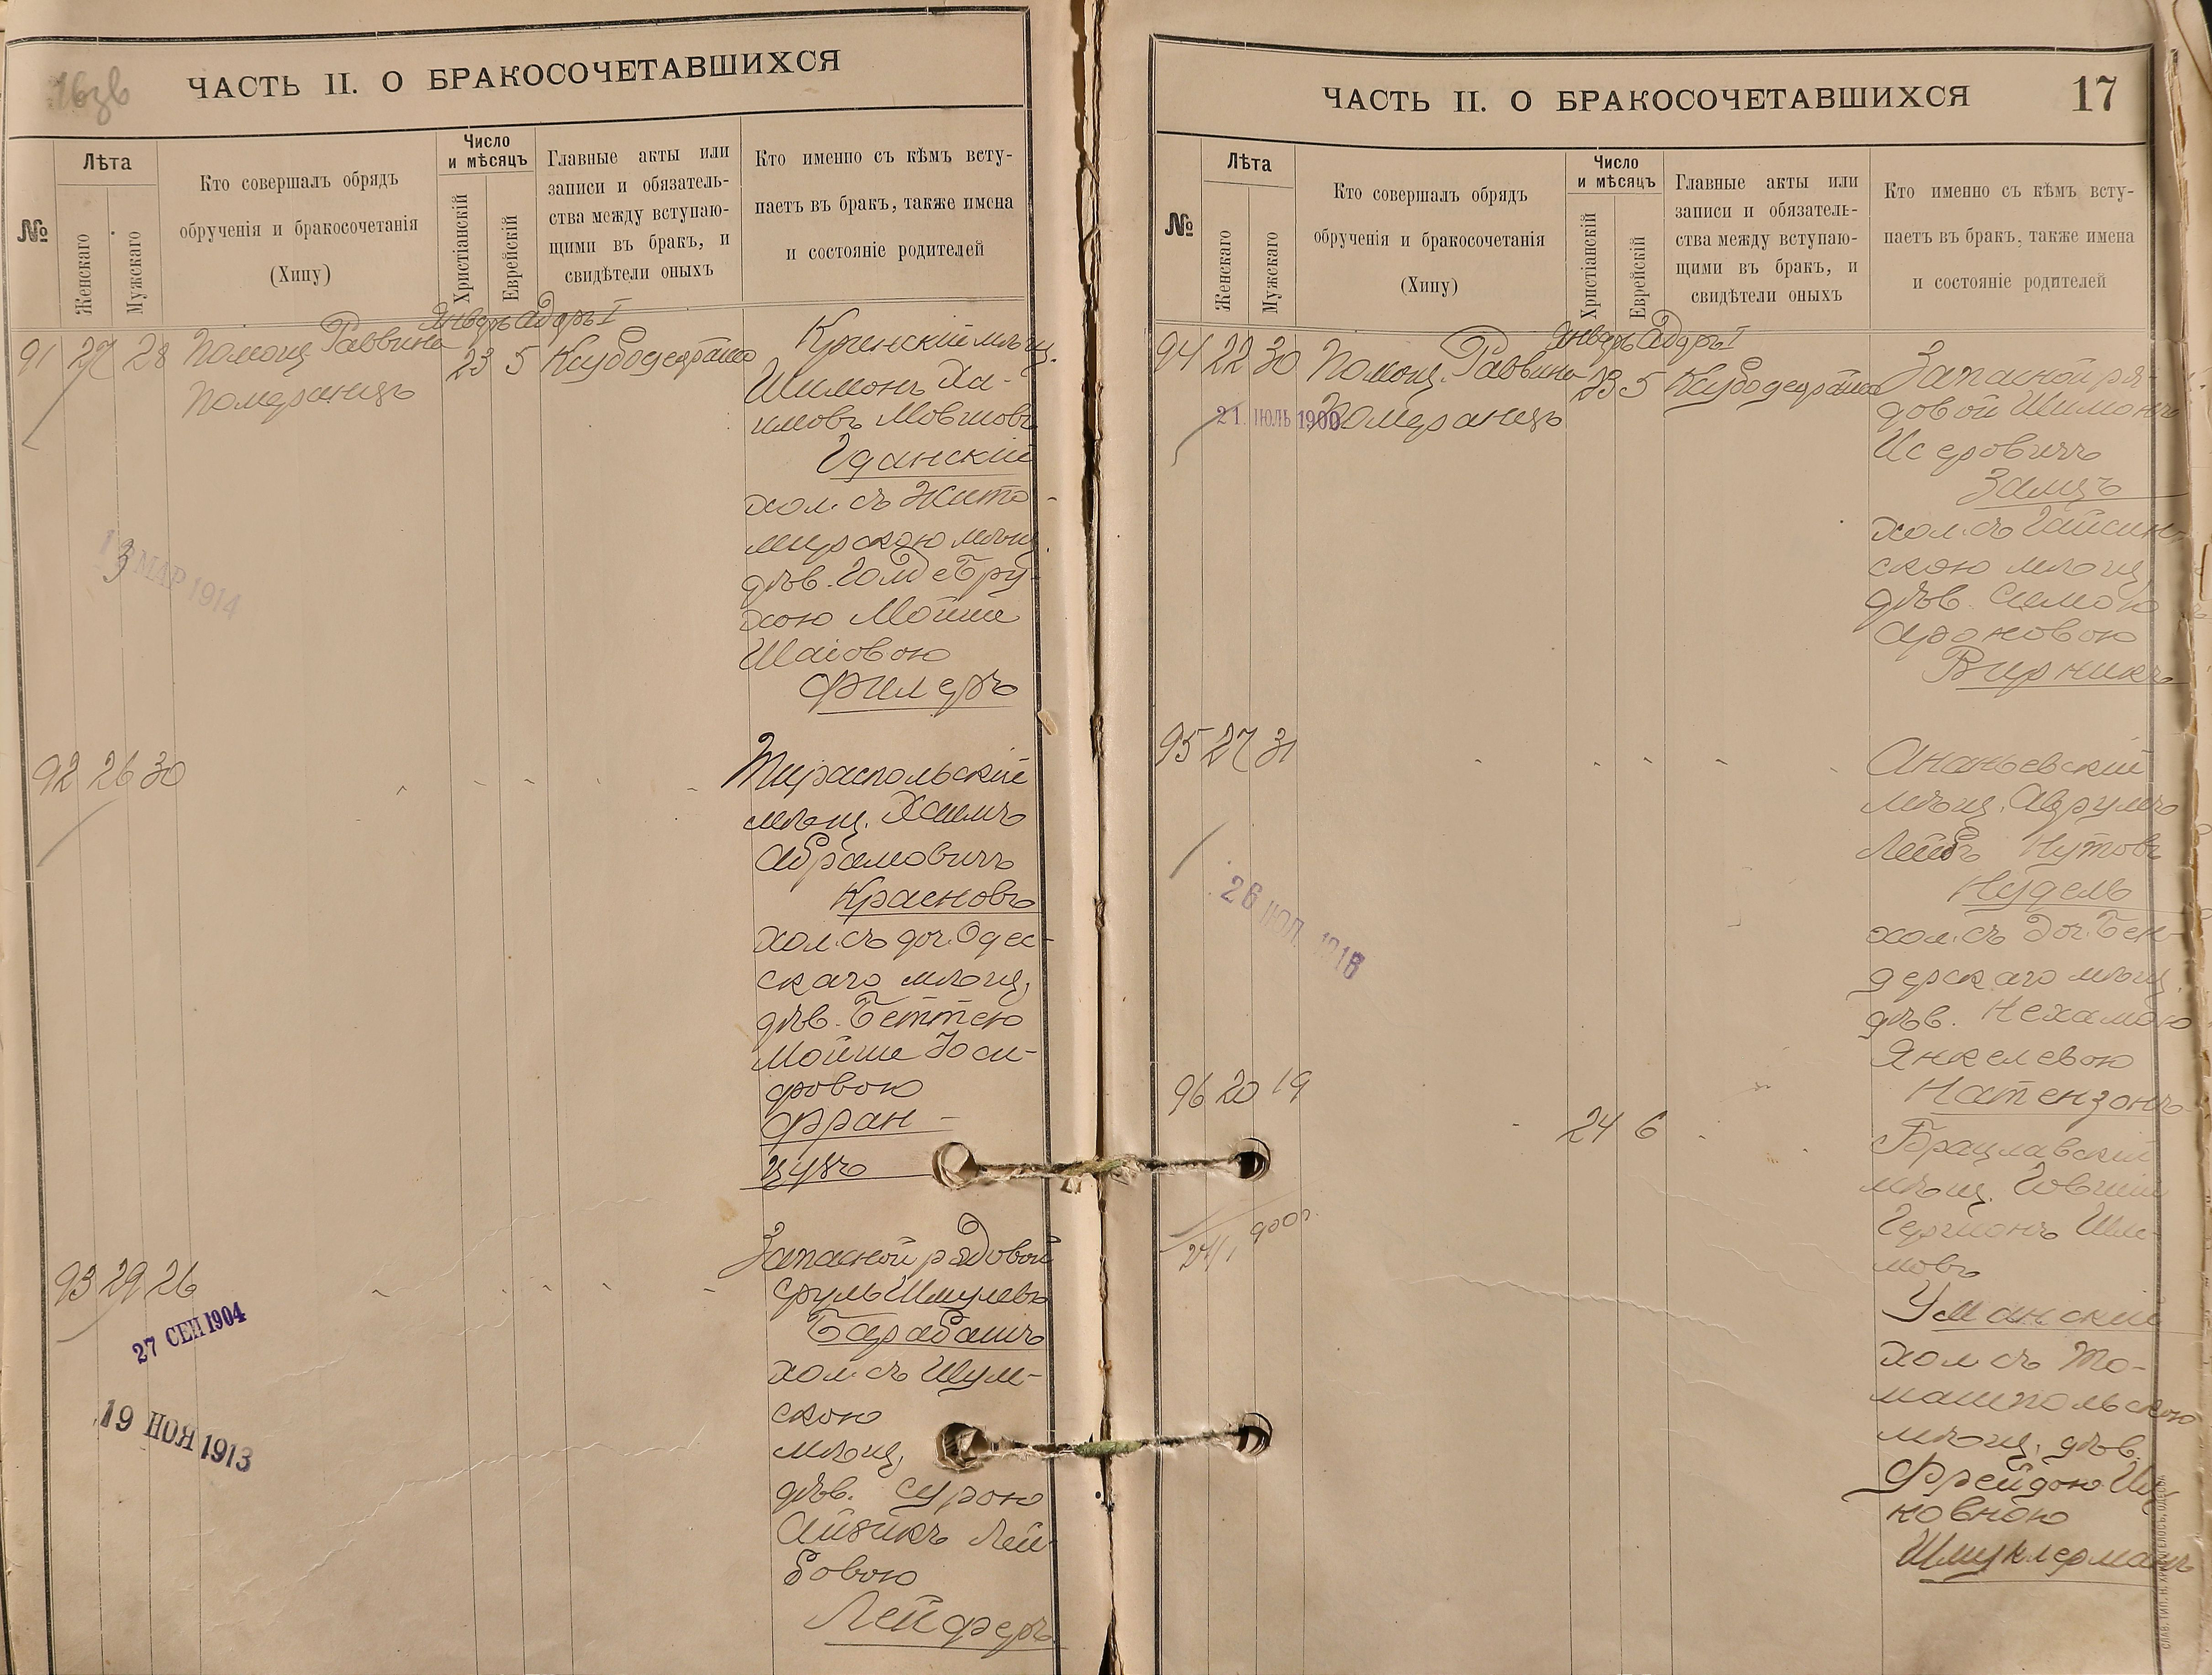 16зв
ЧАСТЬ II. О БРАКОСОЧЕТАВШИХСЯ
№
Лѣта
Женскаго
Мужскаго
Кто совершалъ обрядъ
обрученія и бракосочетанія
(Хипу)
Число
и мѣсяцъ
Христіанскій
Еврейскій
Главные акты или
записи и обязатель-
ства между вступаю-
щими въ бракъ, и
свидѣтели оныхъ
Кто именно съ кѣмъ всту-
паетъ въ бракъ, также имена
и состояніе родителей
Январь Адаръ I
91 27 28 Помощ. Раввина 23 5
Померанцъ
мѣщ.
Шимонъ Ха-
имовъ Мовшовъ
Гданскій
хол. съ Жито-
мирскою мѣщ.
дѣв. Голде Бру-
хою Мойше
Шаіовою
Филеръ
13 МАР 1914
92 26 30
Тираспольскій
мѣщ. Хаимъ
Абрамовичъ
Красновъ
хол. съ доч. Одес-
скаго мѣщ.
дѣв. Беттею
Мойше Іоси-
фовою
Фран-
цузъ
93 29 26
Запасной рядовой
Сруль Шмулевъ
Барабашъ
хол. съ Шум-
скою
мѣщ.
дѣв. Сурою
Айзикъ Лей-
бовою
Лейферъ
27 СЕН 1904
19 НОЯ 1913
ЧАСТЬ II. О БРАКОСОЧЕТАВШИХСЯ
17
№
Лѣта
Женскаго
Мужскаго
Кто совершалъ обрядъ
обрученія и бракосочетанія
(Хипу)
Число
и мѣсяцъ
Христіанскій
Еврейскій
Главные акты или
записи и обязатель-
ства между вступаю-
щими въ бракъ, и
свидѣтели оныхъ
Кто именно съ кѣмъ всту-
паетъ въ бракъ, также имена
и состояніе родителей
Январь Адаръ I
94 22 30 Помощ. Раввина 23 5
Померанцъ
21. ІЮЛЬ 1900
Запасной ря-
довой Шимонъ
Исеровичъ
Замцъ
хол. съ Гайсин-
скою мѣщ.
дѣв. Симою
Ароновою
Вирникъ
95 27 31
Ананьевскій
мѣщ. Аврумъ
Лейбъ Нутовъ
Нудель
хол. съ доч. Бен-
дерскаго мѣщ.
дѣв. Нехамою
Янкелевою
Натензонъ
26 ІЮЛ. 1916
96 20 19
24 6
Брацлавскій
мѣщ.
Гершонъ Шли-
мовъ
Уманскій
хол. съ То-
машпольскою
мѣщ. дѣв.
Фрейдою Иц-
ковною
Шмуклерманъ
24/I 900г.